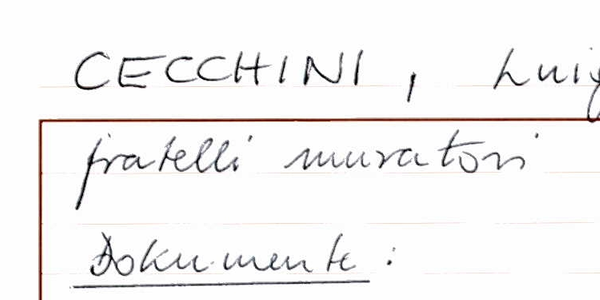 CECCHINI, Luig
fratelli muratori
Dokumente: